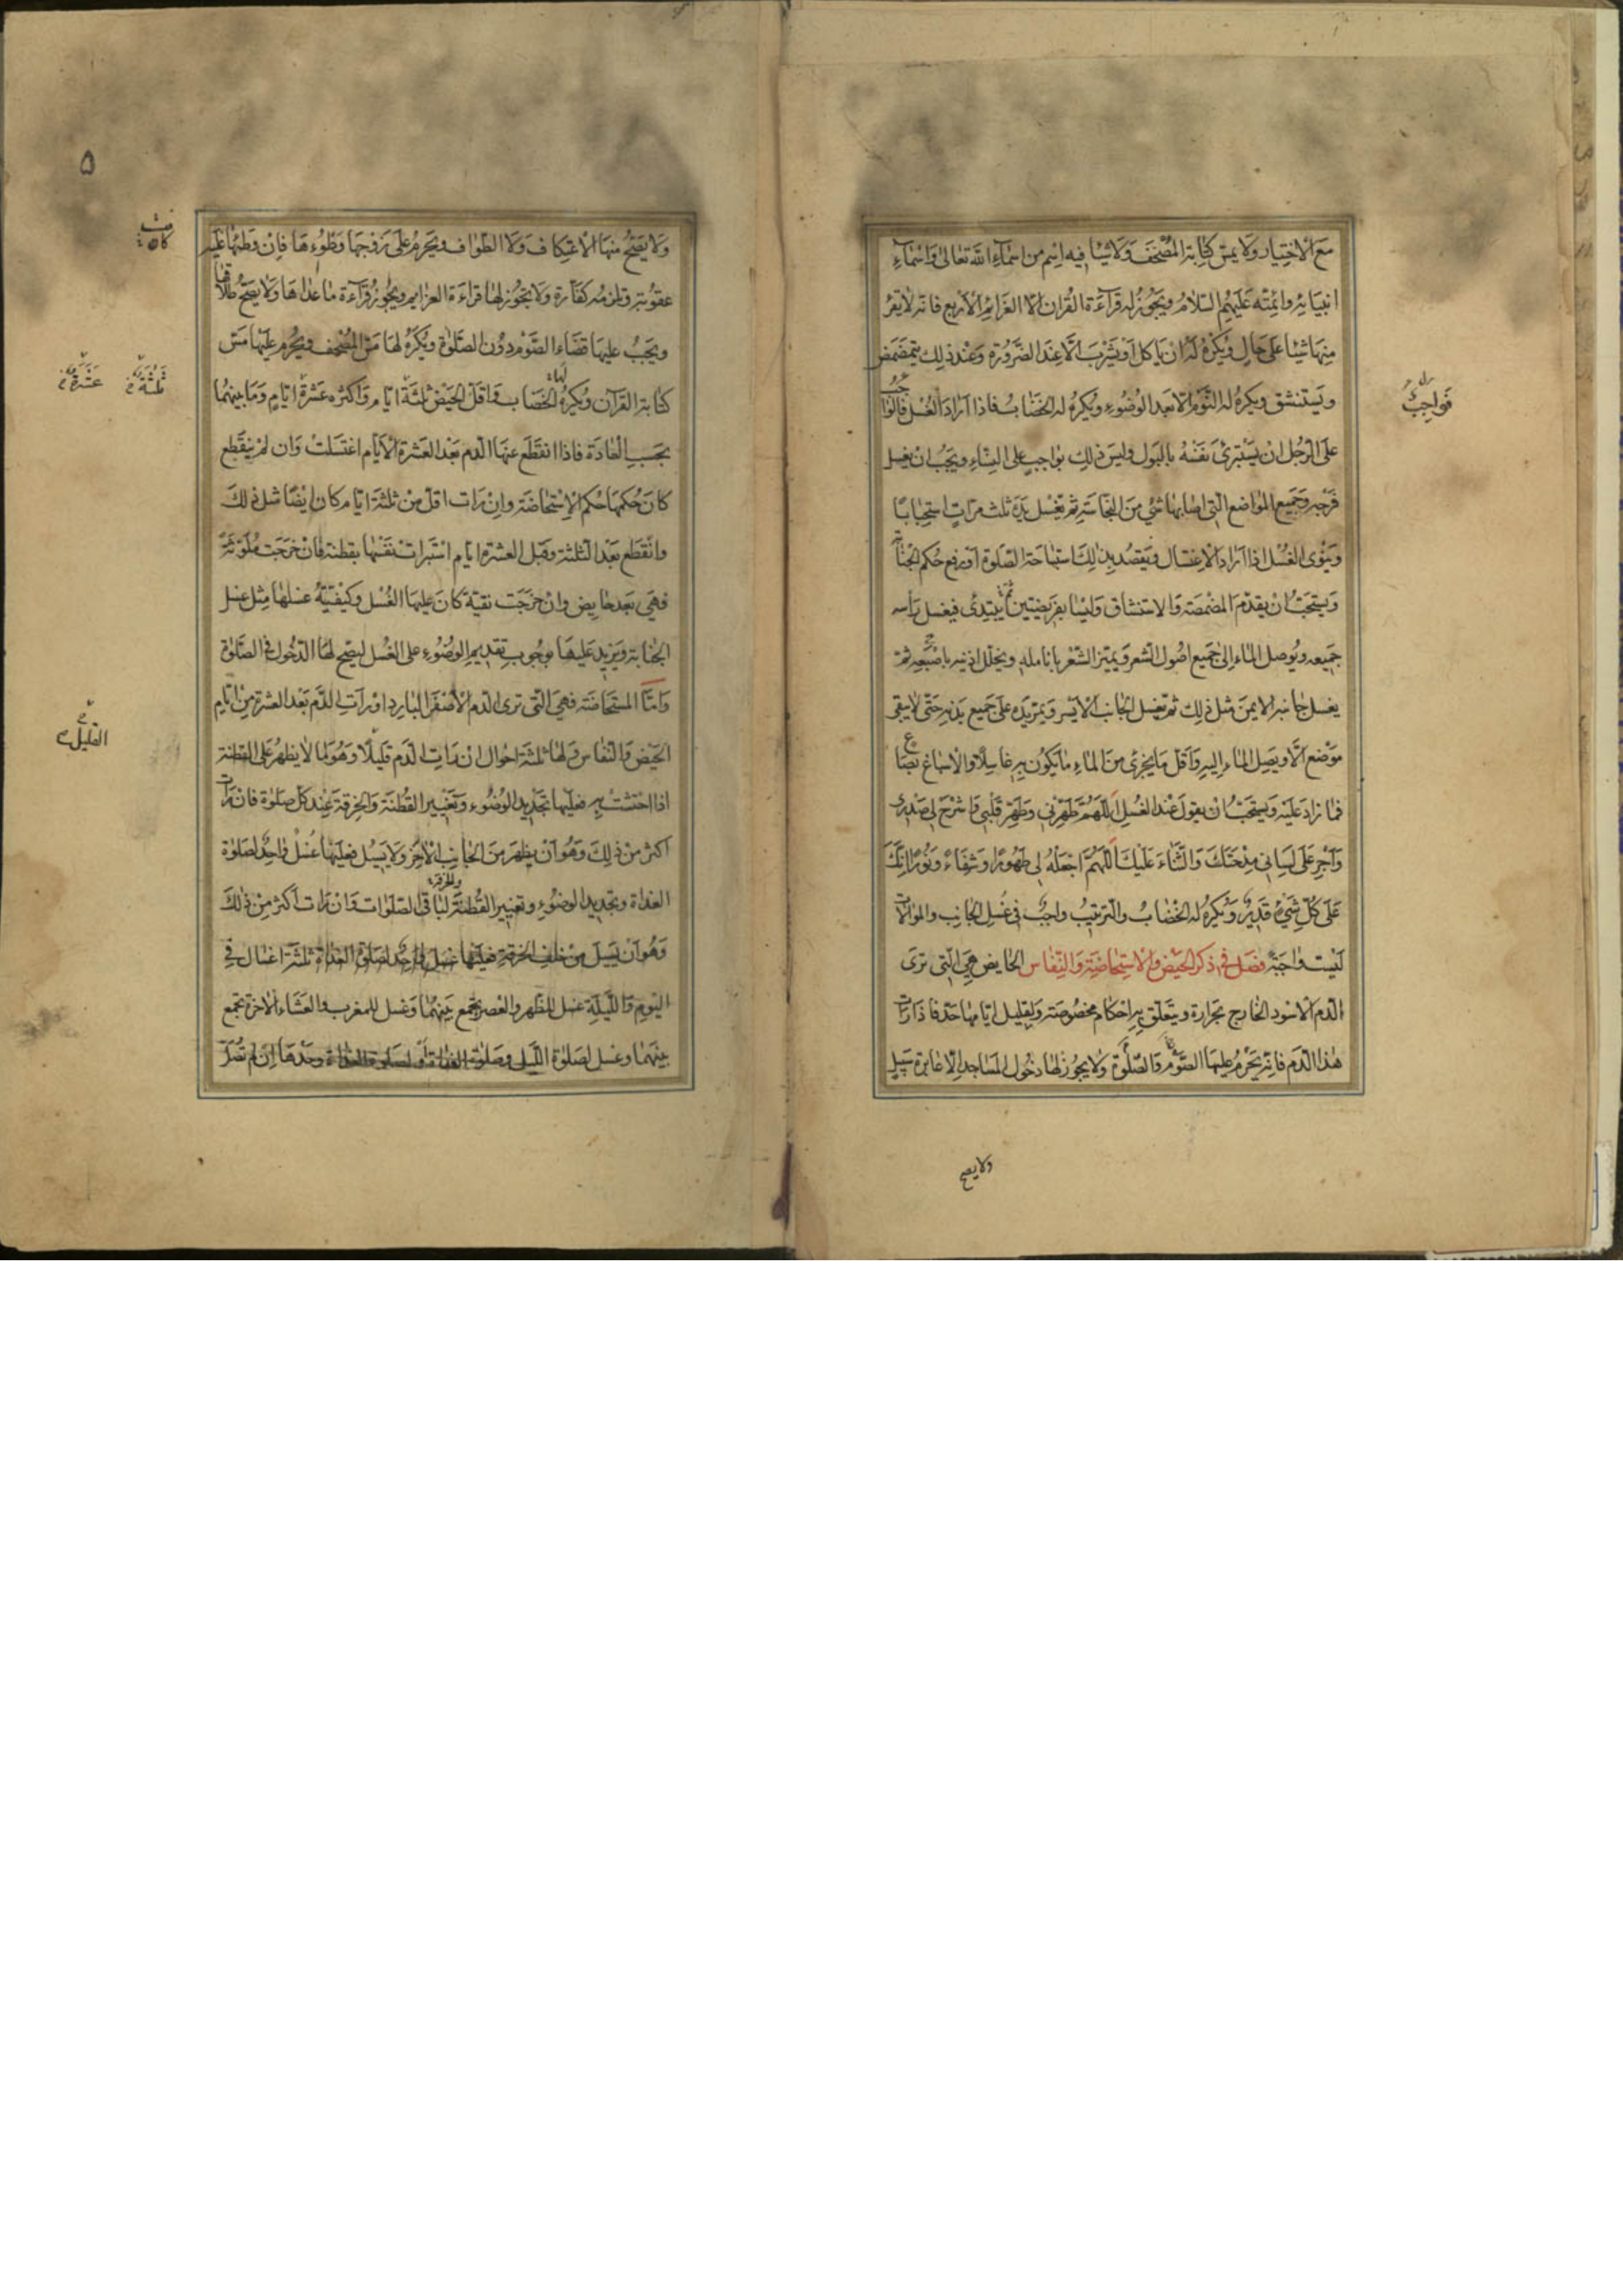 مع الاختيار ولا يمس كتابة المصحف ولا شيئا فيه اسم من اسماء الله تعالى واسماء
انبيائه وائمته عليهم السلام ويجوز له قراءة القران الا العزائم الاربع فانه لا يقرا
منها شيئا على حال ويكره له ان ياكل او يشرب الا عند الضرورة وعند ذلك يتمضمض
ويستنشق ويكره له النوم الا بعد الوضوء ويكره له الخضاب فاذا اراد الغسل فالواجب
على الرجل ان يستبرئ نفسه بالبول وليس ذلك بواجب على النساء ويجب ان يغسل
فرجه وجميع المواضع التي اصابها شئ من النجاسة ثم يغسل يده ثلث مرات استحبابا
وينوي الغسل اذا اراد الاغتسال ويقصد بذلك استباحة الصلوة او رفع حكم الجنابة
ويستحب ان يقدم المضمضة والاستنشاق وليسا بفريضتين ثم يبتدئ فيغسل رأسه
جميعه ويوصل الماء الى جميع اصول الشعر ويميز الشعر بانامله ويخلل اذنيه باصبعيه ثم
يغسل جانبه الايمن مثل ذلك ثم يغسل الجانب الايسر ويمر يده على جميع بدنه حتى لا يبقى
موضع الا ويصل الماء اليه واقل ما يجزئ من الماء ما يكون به غاسلا والاسباغ بصاع
فما زاد عليه ويستحب ان يقول عند الغسل اللهم طهرني وطهر قلبي واشرح لي صدري
واجر على لساني مدحتك والثناء عليك اللهم اجعله لي طهورا وشفاء ونورا انك
على كل شيء قدير ويكره له الخضاب والترتيب واجب في غسل الجانب والموالات
ليست واجبة فصل في ذكر الحيض والاستحاضة والنفاس الحايض هي التي ترى
الدم الاسود الخارج بحرارة ويتعلق به احكام مخصوصة ولقليل ايامها حد فاذا رات
هذا الدم فانه يحرم عليها الصوم والصلوة ولا يجوز لها دخول المساجد الا عابرة سبيل
ولا يصح
فواجب
ولا يصح منها الاعتكاف ولا الطواف ويحرم على زوجها وطؤها فان وطئها عليه
عقوبة ويلزمه كفارة ولا يجوز لها قراءة العزايم ويجوز قراءة ما عداها ولا يصح طلاقها
ويجب عليها قضاء الصوم دون الصلوة ويكره لها مس المصحف ويحرم عليها مس
كتابة القرآن ويكره لها الخضاب واقل الحيض ثلثة ايام واكثره عشرة ايام وما بينهما
بحسب العادة فاذا انقطع عنها الدم بعد العشرة الايام اغتسلت وان لم ينقطع
كان حكمها حكم الاستحاضة وان رات اقل من ثلثة ايام كان ايضا مثل ذلك
وانقطع بعد الثلثة وقبل العشرة ايام استبرات نفسها بقطنة فان خرجت ملوثة
فهي بعد حايض وان خرجت نقية كان عليها الغسل وكيفية غسلها مثل غسل
الجنابة ويزيد عليها بوجوب تقديم الوضوء على الغسل ليصح لها الدخول في الصلوة
واما المستحاضة فهي التي ترى الدم الاصفر البارد او رات الدم بعد العشرة من ايام
الحيض والنفاس ولها ثلثة احوال ان رات الدم قليلا وهو ما لا يظهر على القطنة
اذا احتشت به فعليها تجديد الوضوء وتغيير القطنة والخرقة عند كل صلوة فان رات
اكثر من ذلك وهو ان يظهر من الجانب الاخر ولا يسيل فعليها غسل واحد لصلوة
الغداة وتجديد الوضوء وتغيير القطنة والخرقة لباقي الصلوات وان رات اكثر من ذلك
وهو ان يسيل من خلف الخرقة فعليها ثلثة اغسال في
اليوم والليلة غسل للظهر والعصر تجمع بينهما وغسل للمغرب والعشاء الاخرة تجمع
بينهما وغسل لصلوة الليل وصلوة الغداة او لصلوة الغداة وحدها ان لم تصل
۵
كانت
ثلثة عشرة
القليل